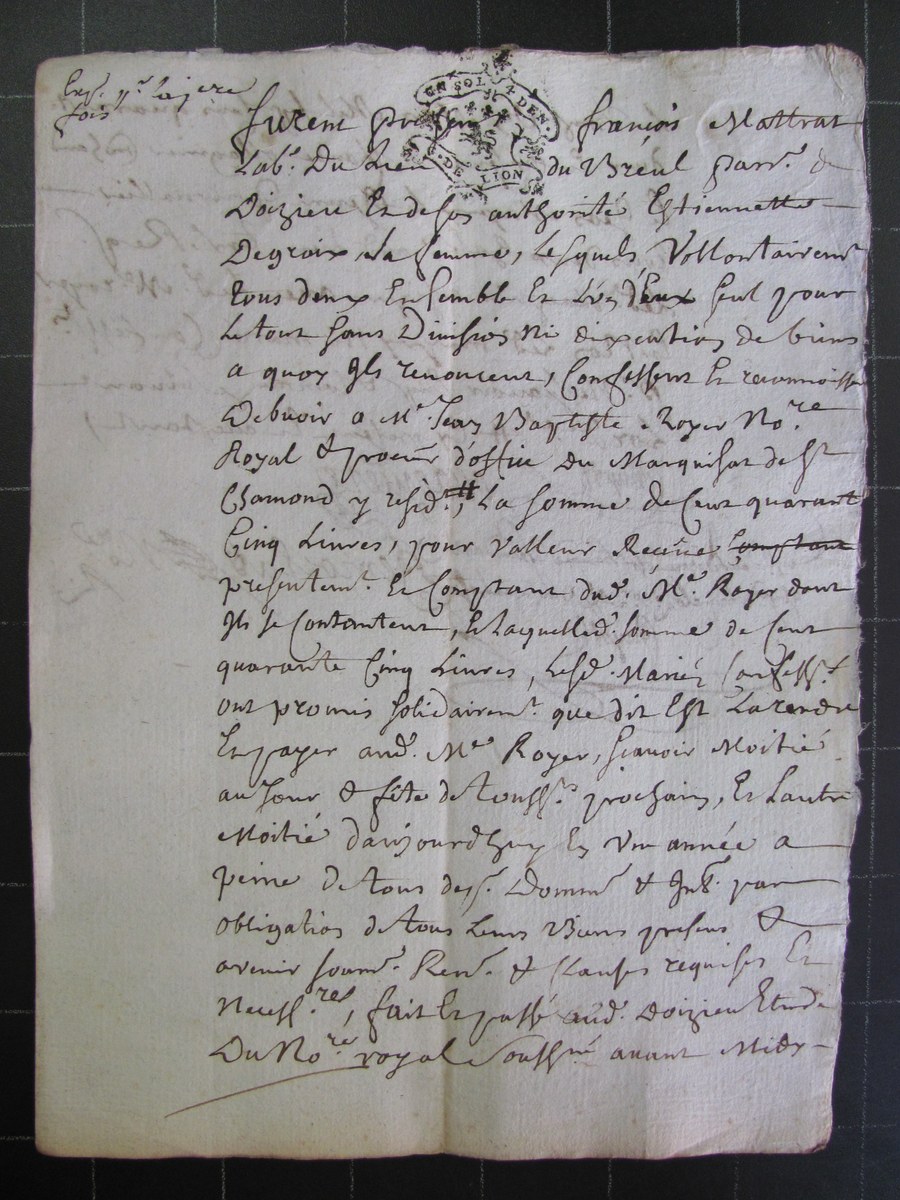 Exp. p.r la jere
fois
UN SOL 4 DEN.
G. DE LION
furent presen francois Mattrat
Lab.r Du Lieu du Bréul parr.e de
Doizieu Et de son authorité Estiennette
Degraix sa femme, Lesquels Vollontairem.t
tous deux Ensemble Et L'un d'Eux seul pour
Le tout sans Division Ni dixcution de biens
a quoy Ils renoncent, Confessent Et reconnoisse
Debvoir a M.e Jean Baptiste Royer No.re
Royal & procur d'office Du Marquisat de St
Chamond y resid.t, La somme de Cent quarante
Cinq Livres, pour Valleur Receüe Comptant
presentem.t Et Comptant dud. M.e Royer dont
Ils se Contentent, Et Laquelled. somme de Cent
quarante Cinq Livres, Lesd. Mariéz Confess.t
ont promis solidairem.t que dit Est La rendre
Et payer aud. M.e Royer, scavoir Moitié
au Jour & féte de Touss.ts prochain, Et L'autre
Moitié daujourd'huy En Vne année a
peine de tous desp. Domm. & Int. par
obligation de tous Leurs Biens presens &
avenir soum. Ren. & Clauses requises Et
Necess.res, fait Et passé aud. Doizieu Etude
Du No.re royal Soussné avant Midy